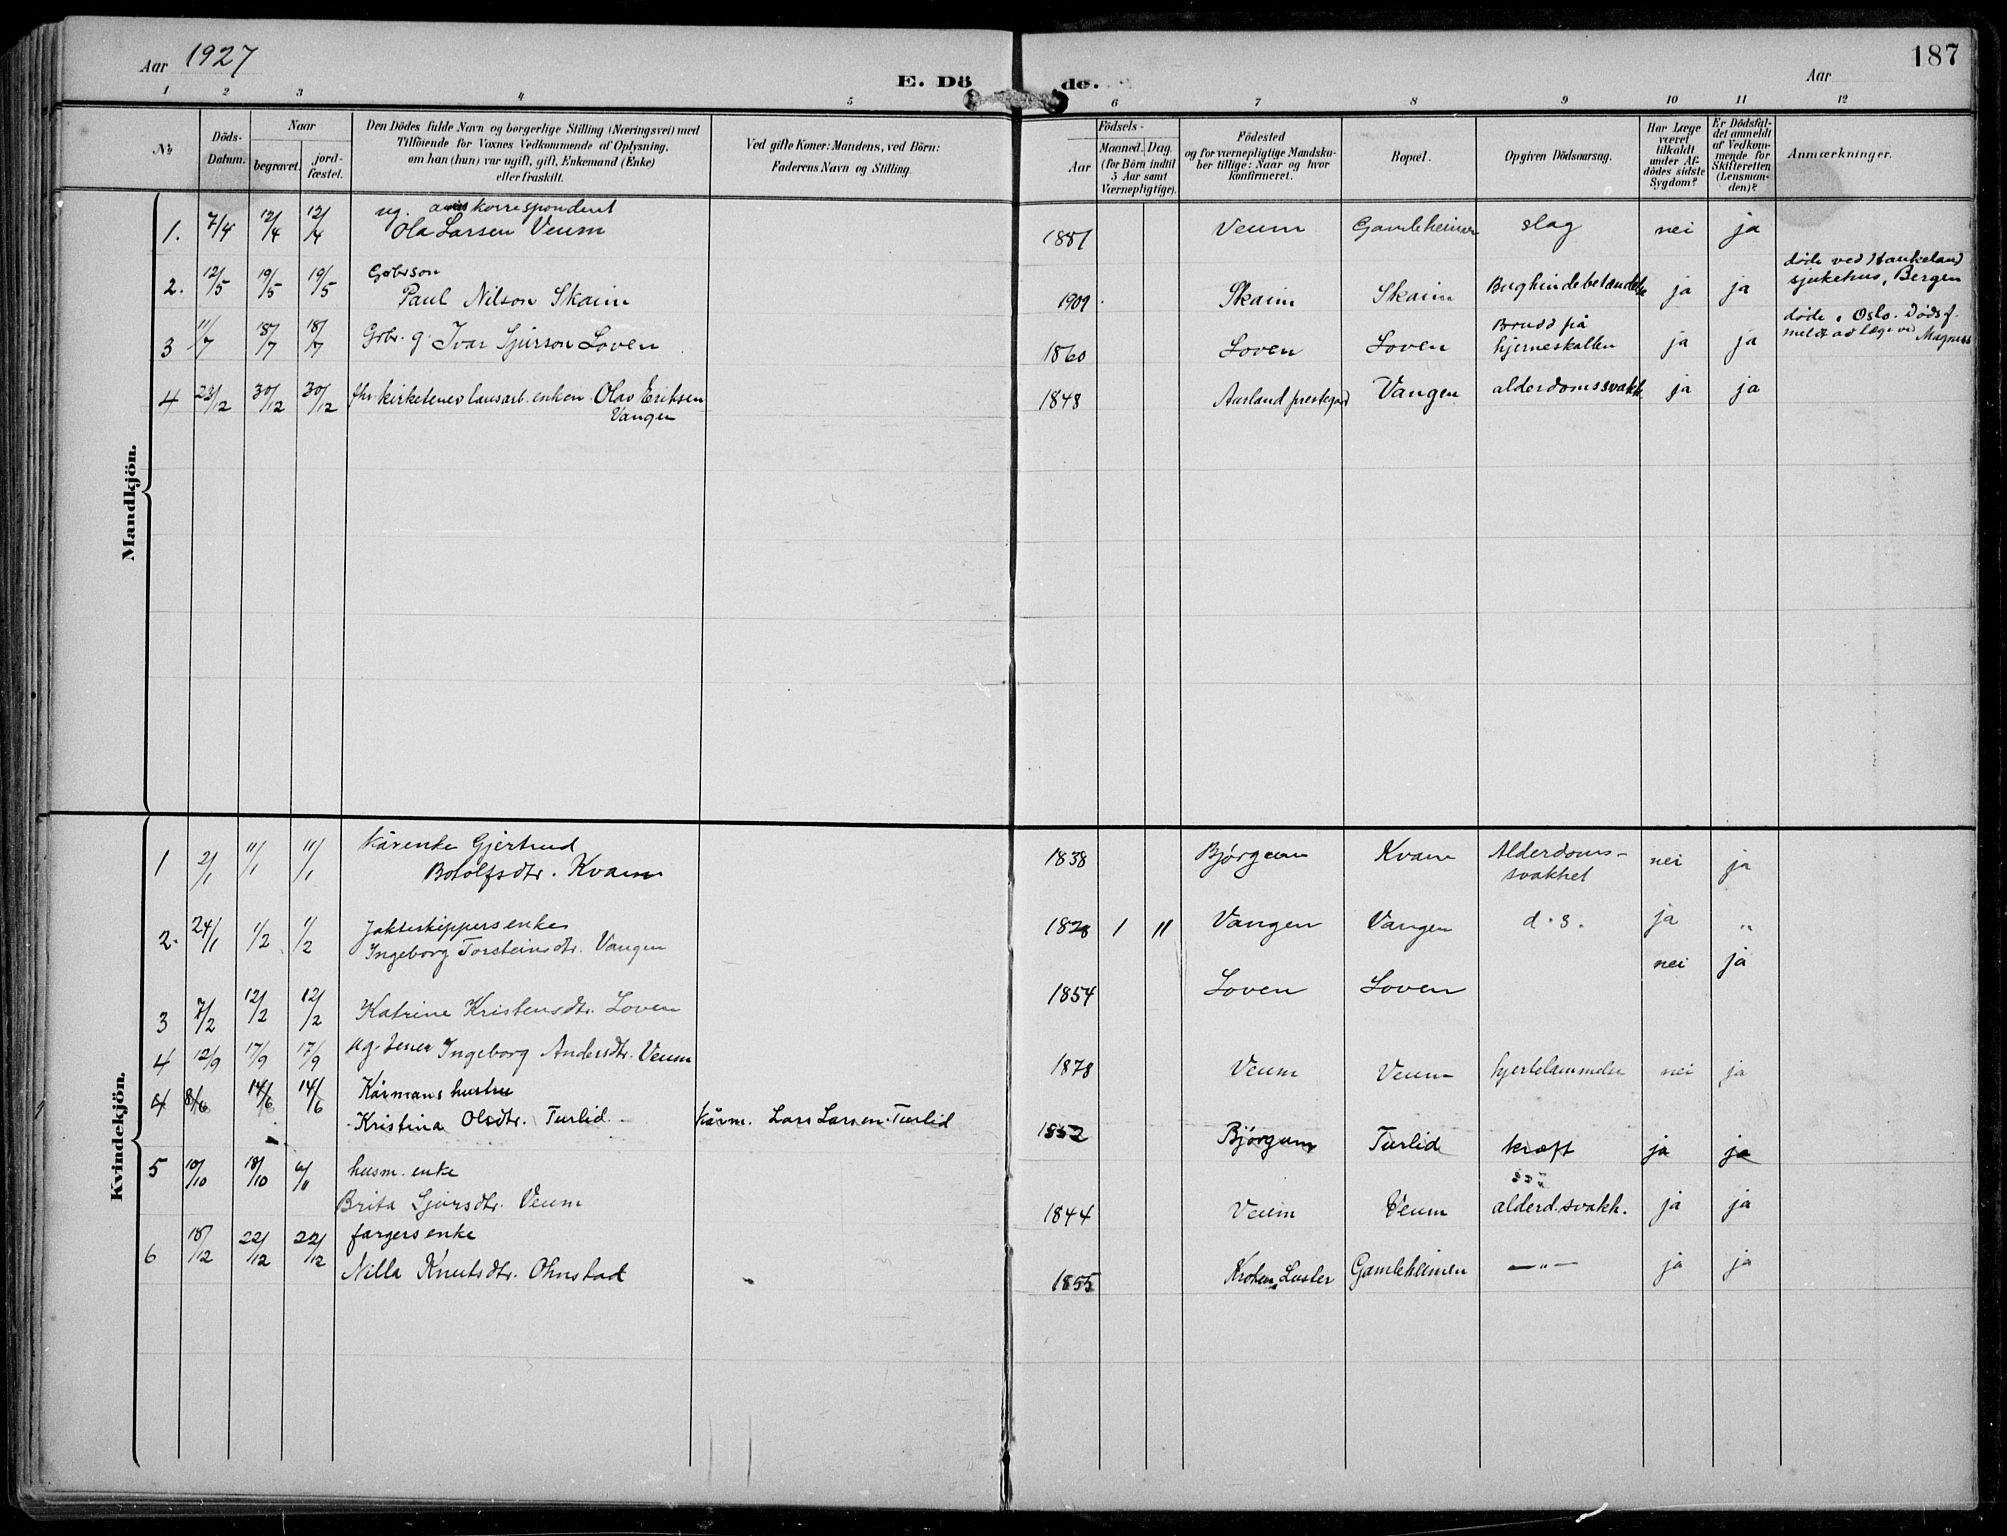 Aar 1927
E. Döde.
Aar
187
1 2 3 4 5 6 7 8 9 10 11 12
No
Döds-Datum.
Naar
begravet.
jord-fæstet.
Den Dödes fulde Navn og borgerlige Stilling (Næringsvei) med
Tilföiende for Voxnes Vedkommende af Oplysning,
om han (hun) var ugift, gift, Enkemand (Enke)
eller fraskilt.
Ved gifte Koner: Mandens, ved Börn:
Faderens Navn og Stilling.
Födsels-
Aar
Maaned. Dag.
(for Börn indtil
5 Aar samt
Værnepligtige).
Födested
og for værnepligtige Mandska-
ber tillige: Naar og hvor
konfirmeret.
Bopæl.
Opgiven Dödsaarsag.
Har Læge
været
tilkaldt
under Af-
dödes sidste
Sygdom?
Er Dödsfal-
det anmeldt
af Vedkom-
mende for
Skifteretten
(Lensman-
den)?
Anmærkninger.
Mandkjön.
1. 7/4 12/4 12/4 ug. aviskorrespondent
Ola Larsen Veum 1881 Veum Gamleheimen slag nei ja
2. 12/5 19/5 19/5 Gbrson
Paul Nilson Skaim 1909 Skaim Skaim Bughindebetændelse ja ja døde ved Haukeland
sjukehus, Bergen
3 11/7 18/7 18/7 Gbr. g. Ivar Sjurson Loven 1860 Loven Loven Brudd på
hjerneskallen ja ja døde i Oslo. Dødsf.
meldt av læge Magnus
4 23/12 30/12 30/12 fhv. kirketener lausarb. enkem. Olav Eriksen
Vangen 1848 Aurland prestegard Vangen alderdomssvakh. ja ja
Kvindekjön.
1 2/1 11/1 11/1 Kårenke Gjertrud
Botolfsdtr. Kvam 1838 Bjørgum Kvam Alderdoms-
svakhet nei ja
2. 24/1 1/2 1/2 Jakteskippersenke
Ingeborg Torsteinsdtr. Vangen 1828 1 11 Vangen Vangen d. s. ja "
3 7/2 12/2 12/2 Katrine Kristensdtr. Loven 1854 Loven Loven nei ja
4 12/9 17/9 17/9 ug. tener Ingeborg Andersdtr. Veum 1878 Veum Veum hjertelammelse nei ja
4 8/6 14/6 14/6 Kårmans hustru
Kristina Olsdtr. Turlid Kårm. Lars Larsen Turlid 1852 Bjørgum Turlid kræft ja ja
5 10/10 18/10 husm. enke
Brita Sjursdtr. Veum 1844 Veum Veum alderd. svakh. ja ja
6 18/12 22/12 22/12 fargersenke
Nilla Knutsdtr. Ohnstad 1855 Kroken, Luster Gamleheimen —"— ja ja